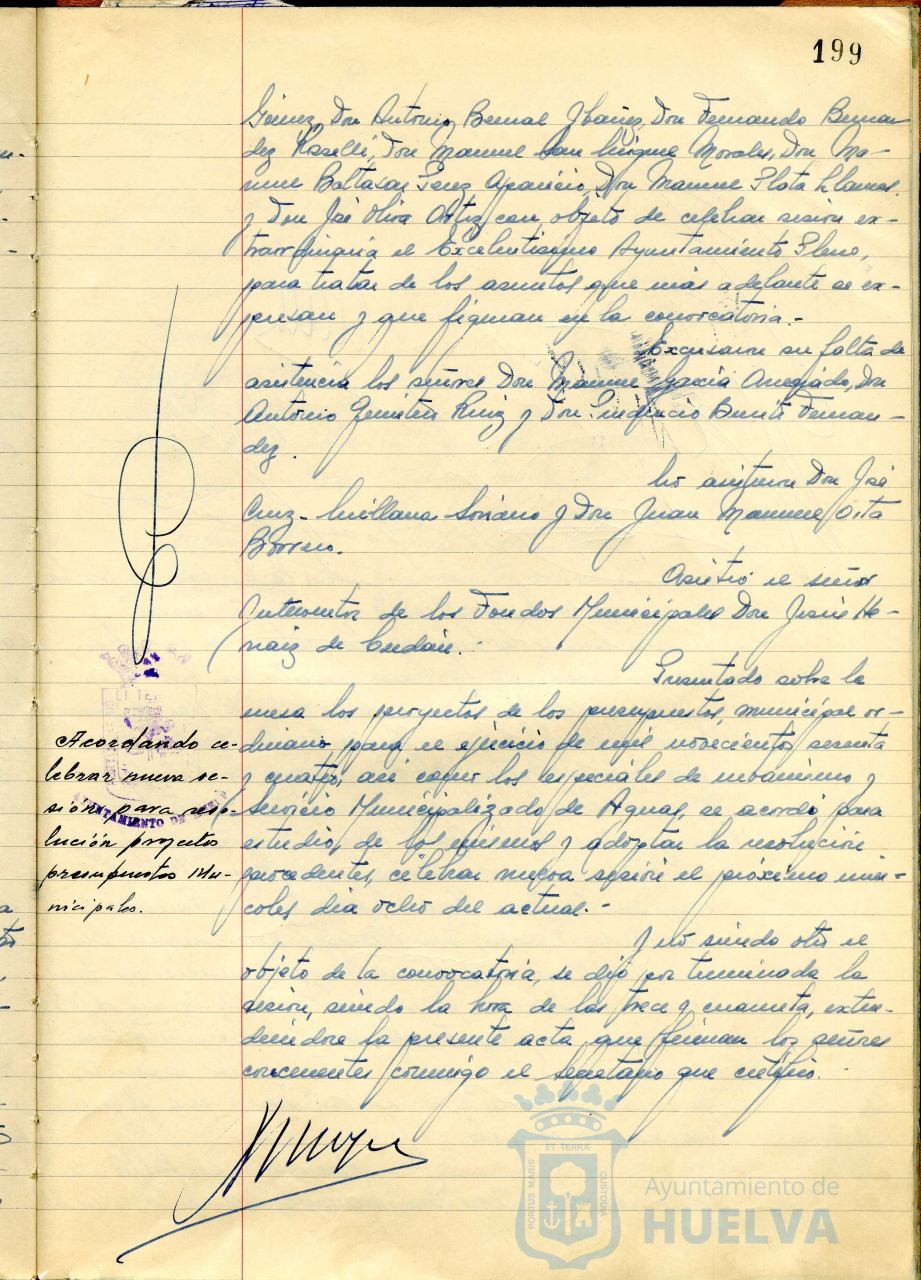 199
Gómez, Don Antonio Bernal Ybáñez, Don Fernando Bernan-
dez Roselli, Don Manuel San Miguel Morales, Don Ma-
nuel Baltasar Perez Aparicio, Don Manuel Plata Llamas
y Don José Oliva Ortiz, con objeto de celebrar sesión ex-
traordinaria el Excelentísimo Ayuntamiento Pleno,
para tratar de los asuntos que más adelante se ex-
presan y que figuran en la convocatoria.-
Excusaron su falta de
asistencia los señores Don Manuel García Don
Antonio Ruiz y Don Benito Fernan-
dez.
No asistieron Don José
Cruz-Millana Soriano y Don Juan Manuel Orta
Borrero.
Asistió el señor
Interventor de los Fondos Municipales Don Jesús He-
naiz de Cerdán.-
Presentado sobre la
mesa los proyectos de los presupuestos, municipal or-
dinario para el ejercicio de mil novecientos sesenta
y cuatro, así como los especiales de urbanismo y
Servicio Municipalizado de Aguas, se acordó para
estudio de los mismos y adoptar la resolución
procedentes, celebrar nueva sesión el próximo miér-
coles día ocho del actual.-
Acordando ce-
lebrar nueva se-
sión para reso-
lución proyectos
presupuestos Mu-
nicipales.
AYUNTAMIENTO DE
Y no siendo otro el
objeto de la convocatoria, se dió por terminada la
sesión, siendo la hora de las trece y cuarenta, exten-
diéndose la presente acta que firman los señores
concurrentes conmigo el Secretario que certifico.-
ET TERRÆ
PORTUS MARIS
CUSTODIA
Ayuntamiento de
HUELVA